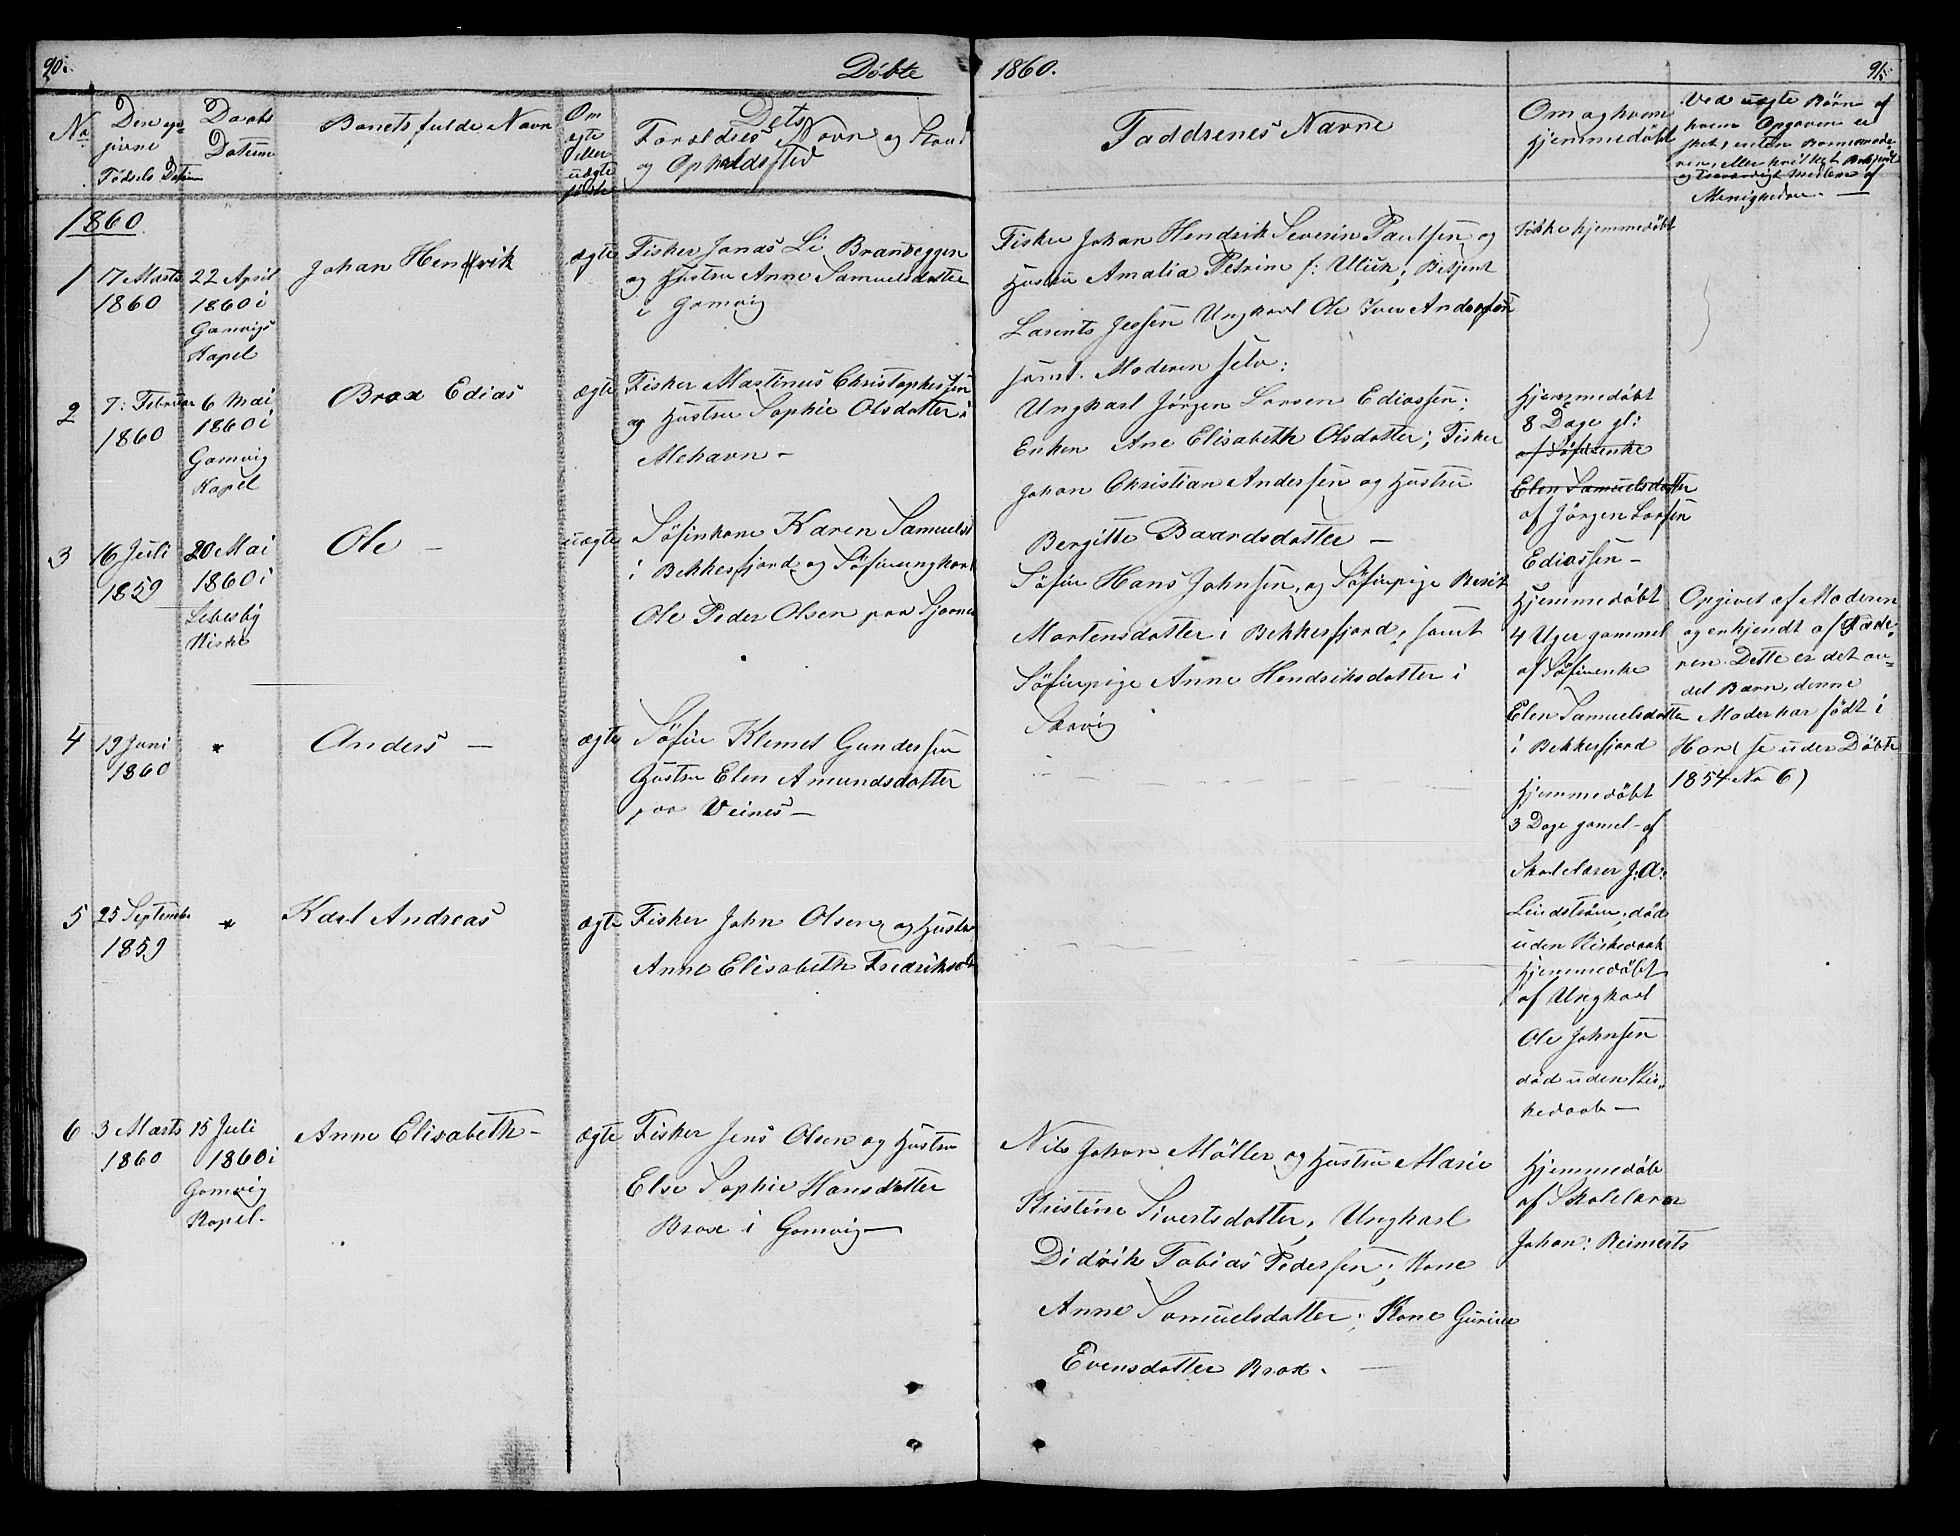 90.
Døbte
1860.
91.
No
Den op
givne
Fødsels Datum
Daabs
Datum
Barnets fulde Navn
Om
ægte
eller
uægte
født
Dets
Forældres Navn og Stand
og Opholdssted
Faddrenes Navne
Om og hvem
hjemmedøbt
Ved uægte Børn af
hvem Opgaven er
skeet, enten Barnemode-
ren, eller
og troværdigt Medlem af
Menigheden. —
1860.
1
17 Marts
1860
22 April
1860 i
Gamvigs
Kapel
Johan Hendrik
ægte
Fisker Jonas Li Brandeggen
og Hustru Anne Samuelsdatter
i Gamvig
Fisker Johan Hendrik Severin Paulsen og
Hustru Amalia Petrine f: Ulich; Betjent
Lorents Jessen Ungkarl Ole Iver Andersen
samt. Moderen selv:
Ikke hjemmedøbt
2
7: Februar
1860
6 Mai
1860 i
Gamvig
Kapel
Brox Edias
ægte
Fisker Martinus Christophersen
og Hustru Sophie Olsdatter i
Mehavn –
Ungkarl Jørgen Larsen Ediassen;
Enken Ane Elisabeth Olsdatter; Fisker
Johan Christian Andersen og Hustru
Bergitte Baardsdatter –
Hjemmedøbt
8 Dage gl:
af Søfinenke
Elen Samuelsdatter
af Jørgen Larsen
Ediassen –
3
16 Juli
1859
20 Mai
1860 i
Lebesby
Kirke
Ole –
uægte
Søfinkone Karen Samuelsd
i Bekkefjord og Søfinungkarl
Ole Peder Olsen paa
Søfin Hans Johnsen, og Søfinpige Berit
Mortensdatter i Bekkesfjord, samt
Søfinpige Anne Hendriksdatter i
Hjemmedøbt
4 Uger gammel
af Søfinenke
Elen Samuelsdatter
i Bekkesfjord
Opgivet af Moderen
og erkjendt af Fade-
ren. Dette er det an-
det Barn, denne
Moder har født i
Hor (se under Døbte
1854 No 6)
4
19 Juni
1860
"
Anders –
ægte
Søfin Klemet Gundersen
Hustru Elen Amundsdatter
paa Veines –
Hjemmedøbt
3 Dage gamel – af
Skolelærer J: A:
Lindstrøm, død
uden Kirkedaab
5
25 Septembr
1859
"
Karl Andreas
ægte
Fisker John Olsen og Hustru
Anne Elisabeth Fredriksdt
Hjemmedøbt
af Ungkarl
Ole Johnsen
død uden Kir-
kedaab –
6
3 Marts
1860
15 Juli
1860 i
Gamvig
Kapel.
Anne Elisabeth –
ægte
Fisker Jens Olsen og Hustru
Else Sophie Hansdatter
Brox i Gamvig –
Nils Johan Møller og Hustru Marie
Kristine Sivertsdatter, Ungkarl
Didrik Tobias Pedersen; Kone
Anne Samuelsdatter; Kone Gurine
Evensdatter Brox.
Hjemmedøb
af Skolelærer
Johan: Reimerts